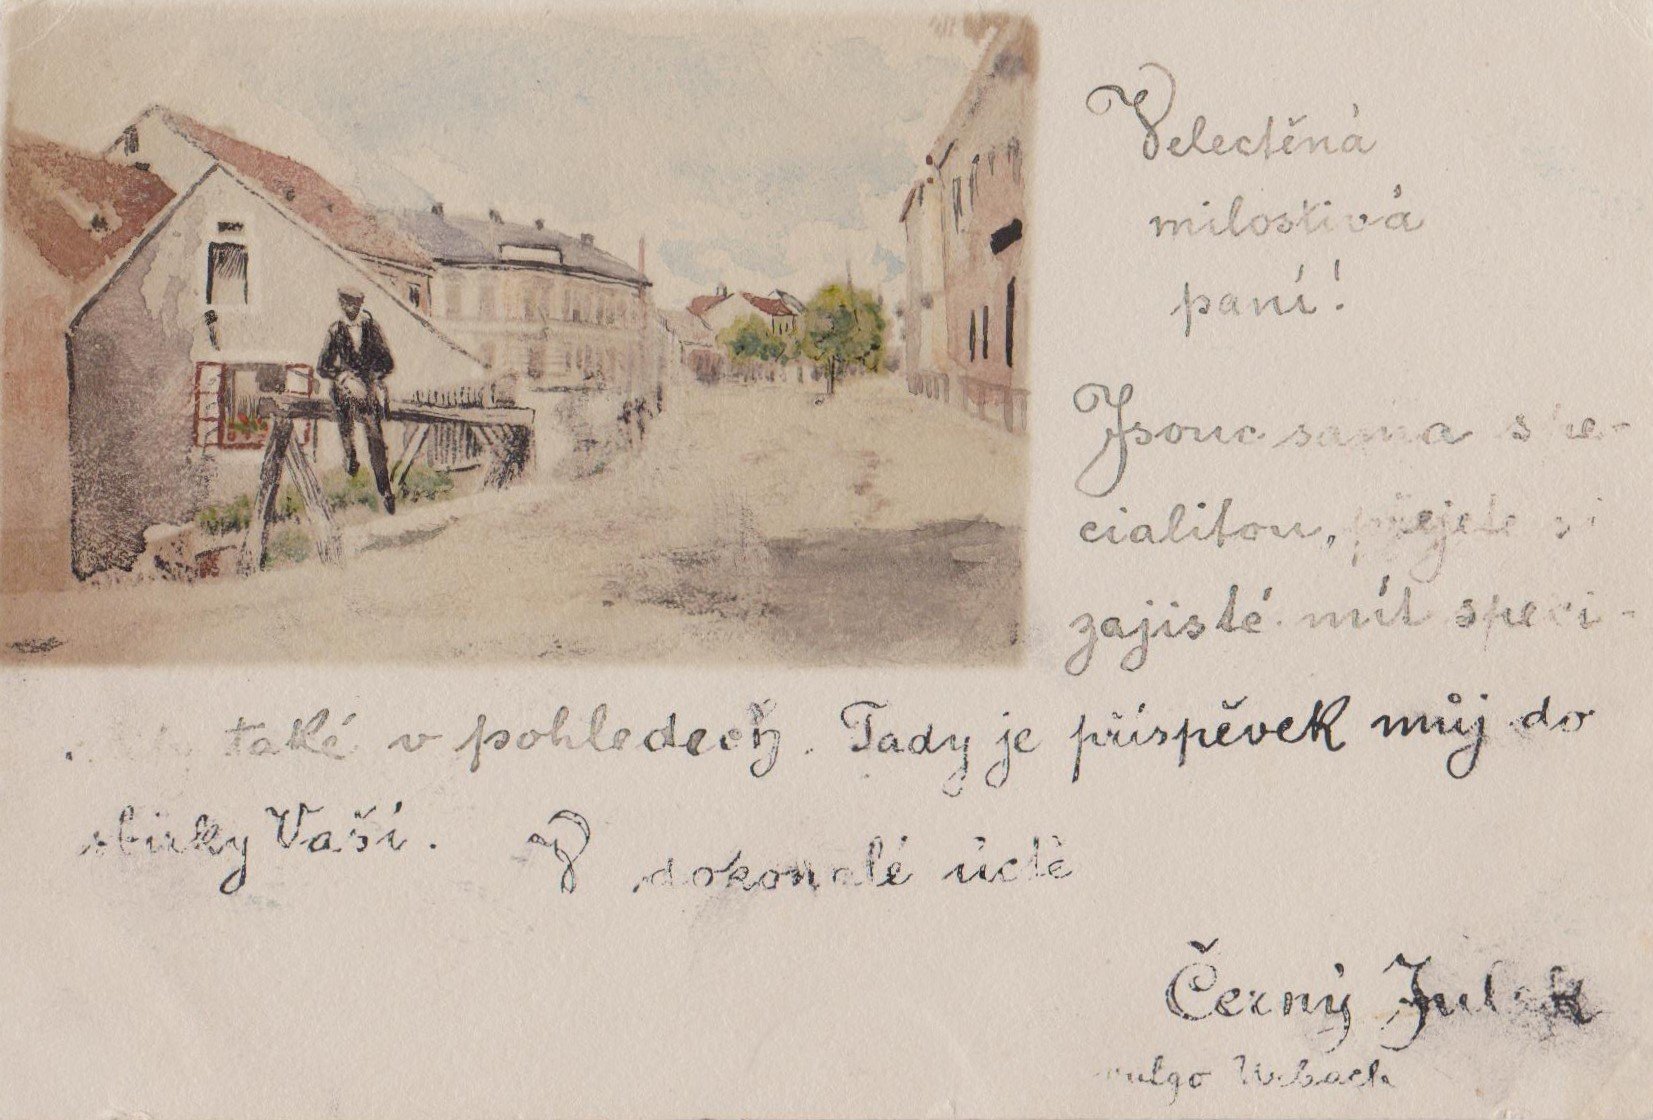 Velectěná
milostivá
paní!
Jsouc sama spe-
cialitou, přejete si
zajisté mít speci-
také v pohledech. Tady je příspěvek můj do
sbírky Vaší. V dokonalé úctě
Černý Julek
vulgo Urbach